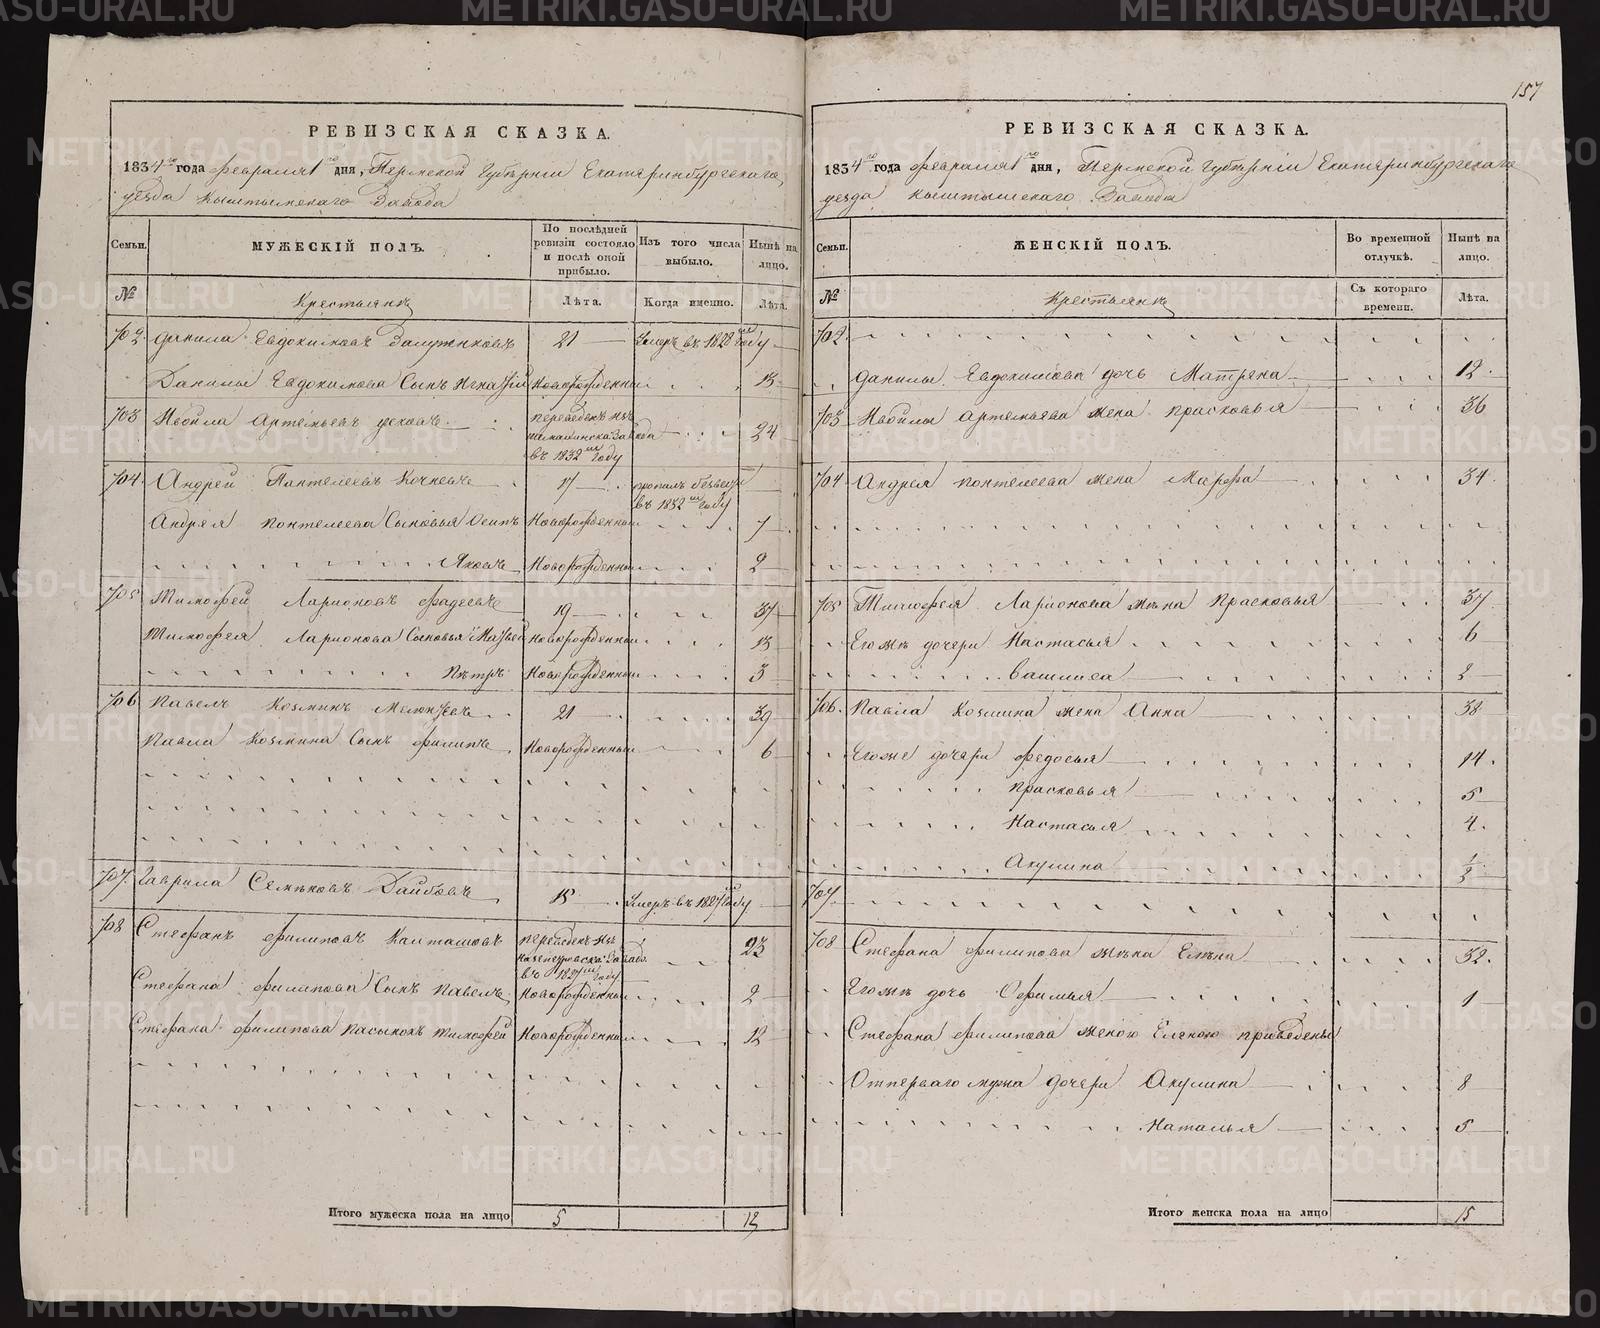 157
РЕВИЗСКАЯ СКАЗКА.
1834го года февраля 1го дня, Пермской Губерніи Екатеринбургскаго
уезда Кыштымскаго Завода
Семьи. МУЖЕСКІЙ ПОЛЪ. По послѣдней ревизіи состояло и послѣ оной прибыло. Изъ того числа выбыло. Нынѣ на лицо.
№ Крестьянъ Лѣта. Когда именно. Лѣта.
702 Данила Евдокимовъ 21 Умеръ въ 1828м году
Данилы Евдокимова Сынъ Игнатій Новорожденный 13
703 Артемьевъ Усковъ переведенъ изъ Завода въ 1832м году 24
704 Андрей Пантелеевъ 17 въ 1832м году
Андрея Понтелеева Сыновья Осипъ Новорожденный 7
Яковъ Новорожденный 2
705 Тимофей Ларионовъ Фадеевъ 19 37
Тимофея Ларионова Сыновья Матвей Новорожденный 13
Петръ Новорожденный 3
706 Павелъ Козминъ 21 39
Павла Козмина Сынъ Филипъ Новорожденный 6
707 Гаврила Семеновъ 15 Умеръ въ 1827м году
708 Стефанъ Филиповъ переведенъ изъ Завод. въ 1827м году 23
Стефана Филипова Сынъ Павелъ Новорожденный 2
Стефана Филипова пасынокъ Тимофей Новорожденный 12
Итого мужеска пола на лицо 5 12
РЕВИЗСКАЯ СКАЗКА.
1834го года февраля 1го дня, Пермской Губерніи Екатеринбургскаго
уезда Кыштымскаго Завода
Семьи. ЖЕНСКІЙ ПОЛЪ. Во временной отлучкѣ. Нынѣ на лицо.
№ Крестьянъ Съ котораго времени. Лѣта.
702
Данилы Евдокимова дочь Матрена 12
703 Артемьева жена Прасковья 36
704 Андрея Понтелеева жена Марфа 34
705 Тимофея Ларионова жена Прасковья 37
Егожъ дочери Настасья 6
Василиса 2
706 Павла Козмина жена Анна 38
Егоже дочери Федосья 14
Прасковья 5
Настасья 4
Акулина ½
707
708 Стефана Филипова жена Елена 32
Егожъ дочь Офимья 1
Стефана Филипова женою Еленою приведены
Отперваго мужа дочери Акулина 8
Наталья 5
Итого женска пола на лицо 15
METRIKI.GASO-URAL.RU